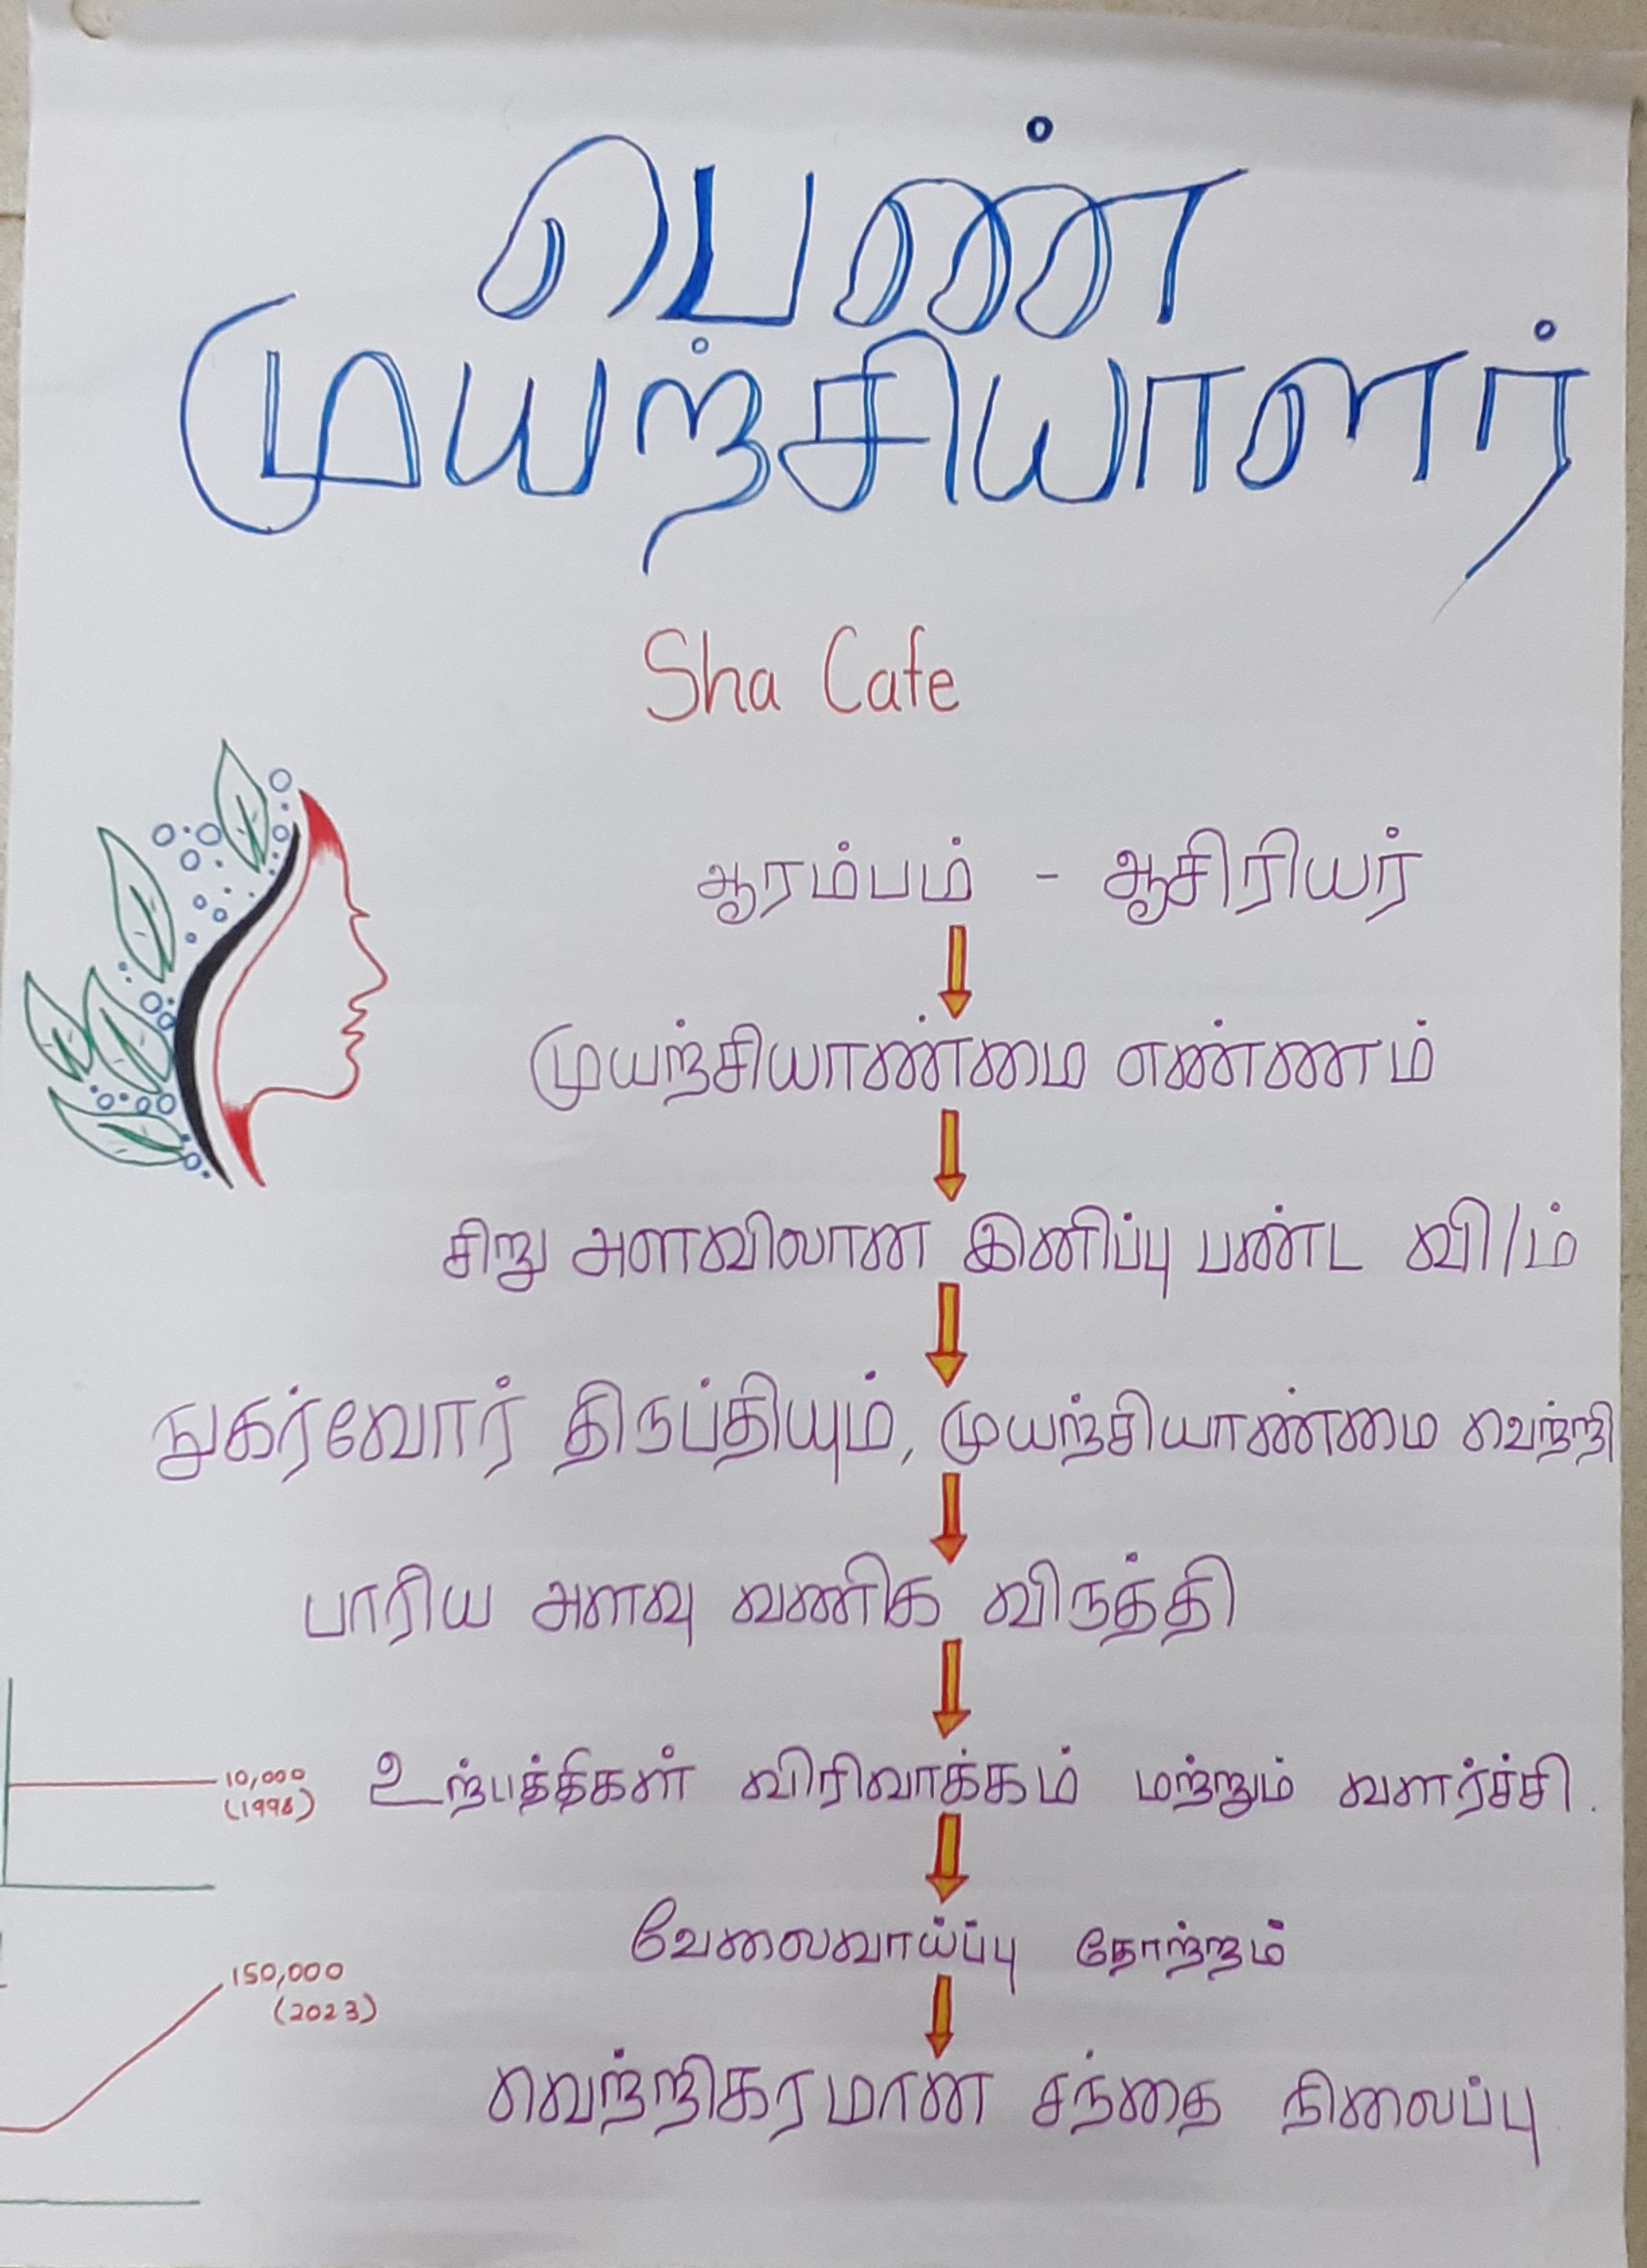 பெண்
முயற்சியாளர்
Sha Cafe
ஆரம்பம் - ஆசிரியர்
முயற்சியாண்மை எண்ணம்
சிறு அளவிலான இனிப்பு பண்ட வி/ம்
நுகர்வோர் திருப்தியும், முயற்சியாண்மை வெற்றி
பாரிய அளவு வணிக விருத்தி
10,000
(1998)
உற்பத்திகள் விரிவாக்கம் மற்றும் வளர்ச்சி.
வேலைவாய்ப்பு தோற்றம்
150,000
(2023)
வெற்றிகரமான சந்தை நிலைப்பு